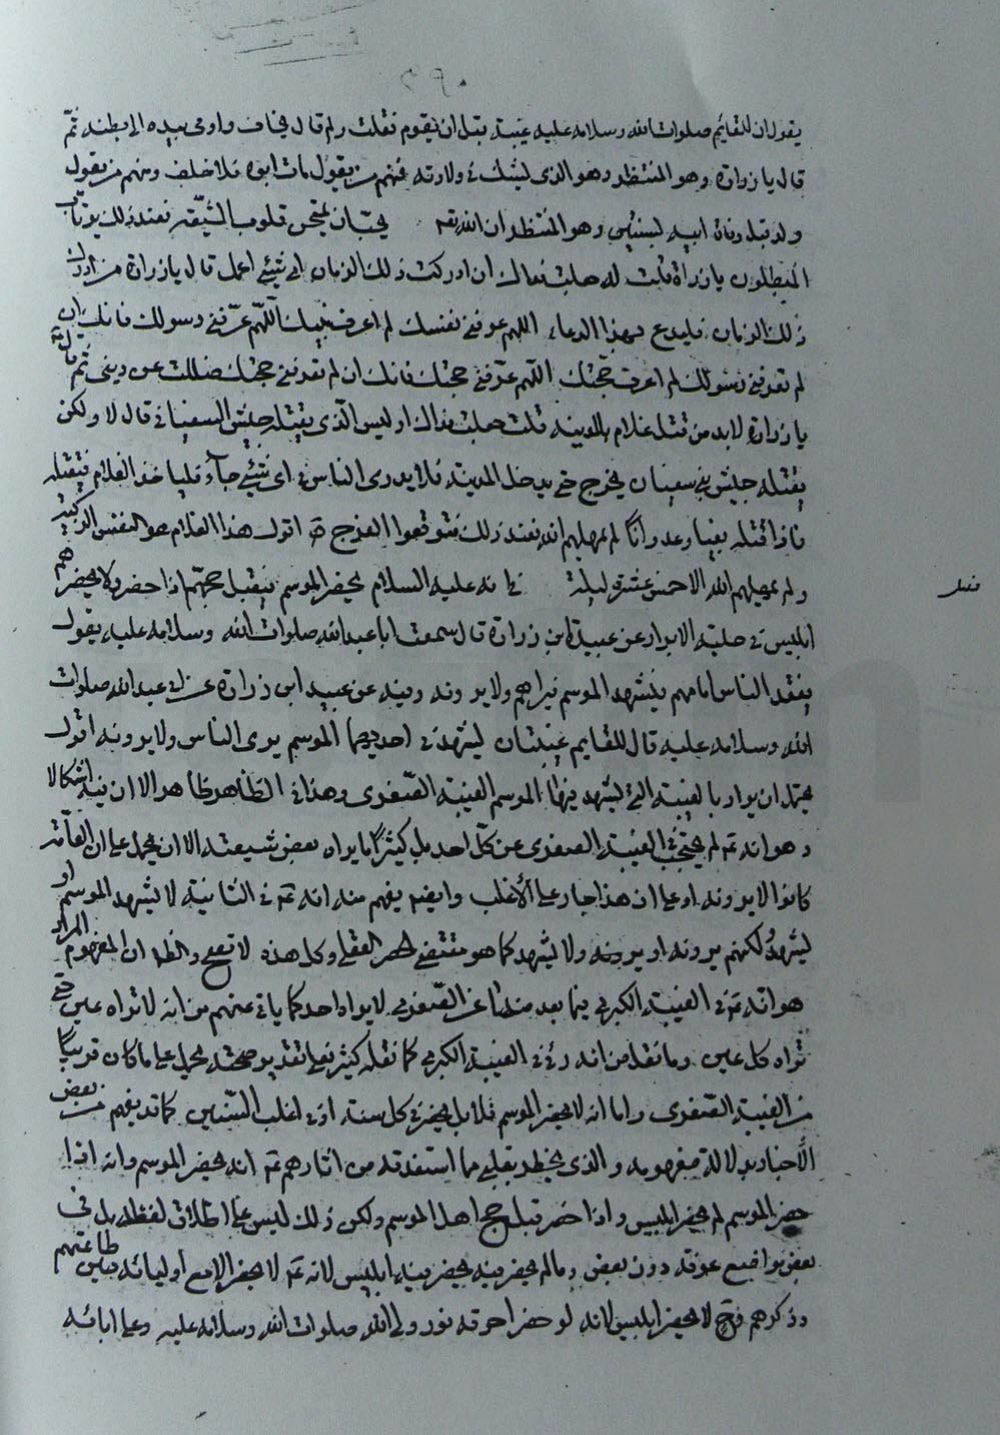 يقول ان للقايم صلوات الله وسلامه عليه غيبة قبل ان يقوم فقلت ولم قال يخاف واومى بيده الى بطنه ثمّ
قال يا زرارة وهو المنتظر وهو الذى يشك فى ولادته فمنهم من يقول مات ابوه فلا خلف ومنهم من يقول
ولد قبل وفاة ابيه بسنتين وهو المنتظر ان الله تعه يحبّ ان يمتحن قلوب الشيعة فعند ذلك يرتاب
المبطلون يا زرارة قلت له جعلت فداك ان ادركت ذلك الزمان اى شئ اعمل قال يا زرارة من ادرك
ذلك الزمان فليدع بهذا الدعاء اللهم عرفنى نفسك لم اعرف نبيك اللّهم عرّفنى رسولك فانك ان
لم تعرفنى رسولك لم اعرف حجتك اللّهم عرّفنى حجتك فانك ان لم تعرفنى حجتك ضللت عن دينى ثم قال
يا زرارة لابد من قتل غلام بالمدينة قلت جعلت فداك اوليس الّذى يقتله جيش السفيانى قال لا ولكن
يقتله جيش بنى سفيان يخرج حتى يدخل المدينة فلا يدرى الناس فى اى شئ جآء فياخذ الغلام فيقتله
فاذا قتله بغيا وعدوانًا لم يمهلهم الله فعند ذلك فتوقعوا الفرج اقول هذا الغلام هو النفس الزكية
ولم يمهلهم الله الا خمس عشرة ليلة فى انه عليه السلام يحضر الموسم فيقبل حجّهم اذا حضر ولا يحضر هم
فصل
ابليس فى حلية الابرار عن عبيد ابن زرارة قال سمعت ابا عبد الله صلوات الله وسلامه عليه يقول
يفقد الناس امامهم فيشهد الموسم فيراهم ولا يرونه وفيه عن عبيد ابن زرارة عن ابى عبد الله صلوات
الله وسلامه عليه قال للقايم غيبتان يشهد فى احديهما الموسم يرى الناس ولا يرونه اقول
يحتمل ان يراد بالغيبة التى يشهد فيها الموسم الغيبة الصّغرى وهذا فى الظّاهر ظاهر الا ان فيه اشكالا
وهو انه لم يحتجب فى الغيبة الصغرى عن كلّ احد بل كثيرًا ما يراه بعض شيعته الا ان يحمل على ان العآمّة
كانوا لا يرونه او على ان هذا جار على الأغلب وايضا يفهم منه انه فى الثانية لا يشهد الموسم او
يشهدُ لكنهم يرونه او يرونه ولا يشهد كما هو مقتضى الحصر العقلى وكل هذه لا تصح والظ ان المفهوم المراد
هو انه فى الغيبة الكبرى فيما بعد عن الصّغرى لا يراه احد كما ياتى عنهم من انه لا تراه عين حتى
تراه كل عين وما نقل من انه رئى فى الغيبة الكبرى كما نقله كثير فعلى تقدير صحته يحمل على ما كان قريبًا
من الغيبة الصّغرى واما انه لا يحضر الموسم فلا بل يحضر فى كل سنة او فى اغلب السّنين كما قد يفهم من بعض
الأخبار بدلالة مفهومه والذى يخطر بقلبى مما استفدته من اثارهم انه يحضر الموسم وانه اذا
حضر الموسم لم يحضر ابليس واذا حضر قبل حج اهل الموسم ولكن ذلك ليس على اطلاق لفظه بل فى
بعض مواضع عرفة دون بعض وما لم يحضر فيه يحضر فيه ابليس لانه لا يحضر الا مع اوليائه طاعتهم
وذكرهم فح لا يحضر ابليس لانه لو حضر احرقه نور ولى الله صلوات الله وسلامه عليه وعلى ابائه